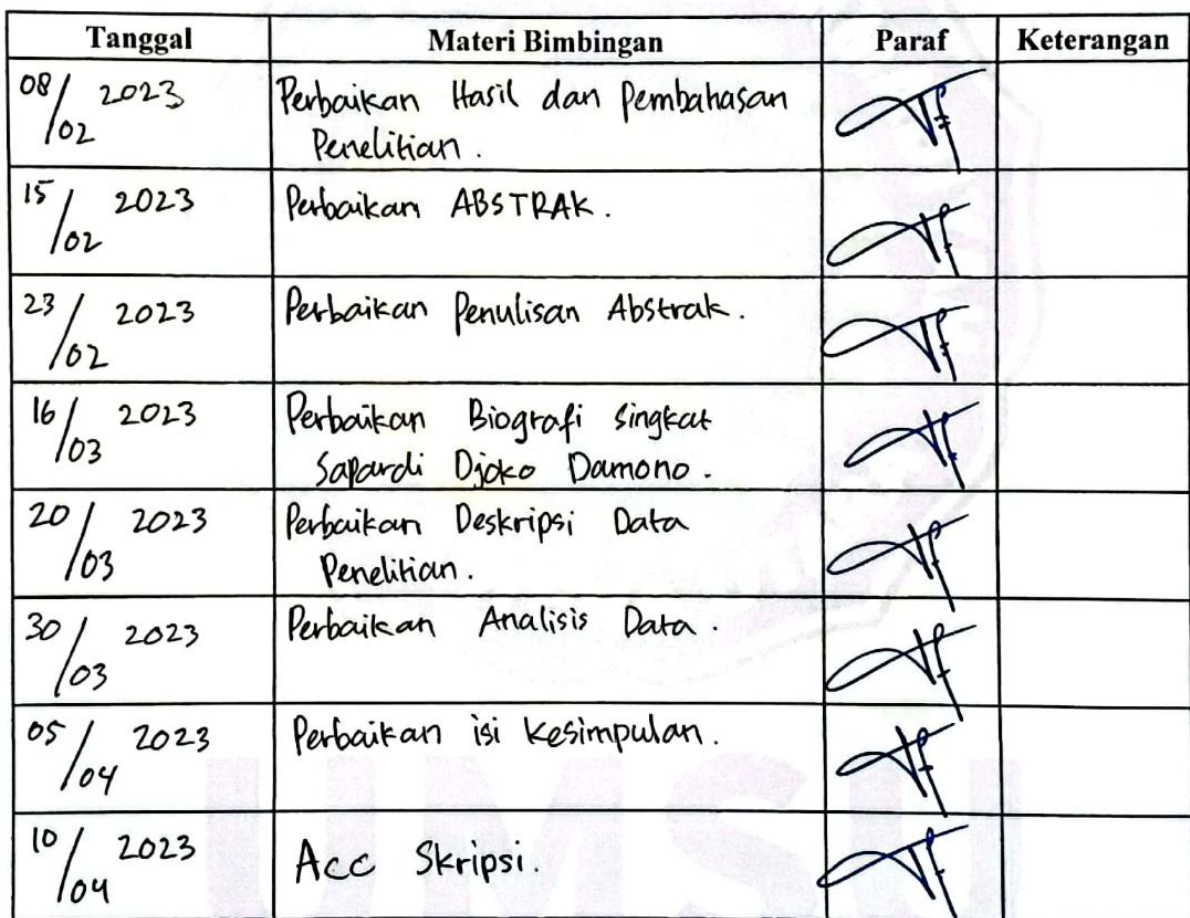 Tanggal Materi Bimbingan Paraf Keterangan
08/02 2023 Perbaikan Hasil dan Pembahasan
Penelitian.
15/02 2023 Perbaikan ABSTRAK.
23/02 2023 Perbaikan Penulisan Abstrak.
16/03 2023 Perbaikan Biografi Singkat
Sapardi Djoko Damono.
20/03 2023 Perbaikan Deskripsi Data
Penelitian.
30/03 2023 Perbaikan Analisis Data.
05/04 2023 Perbaikan isi Kesimpulan.
10/04 2023 Acc Skripsi.
UMSU